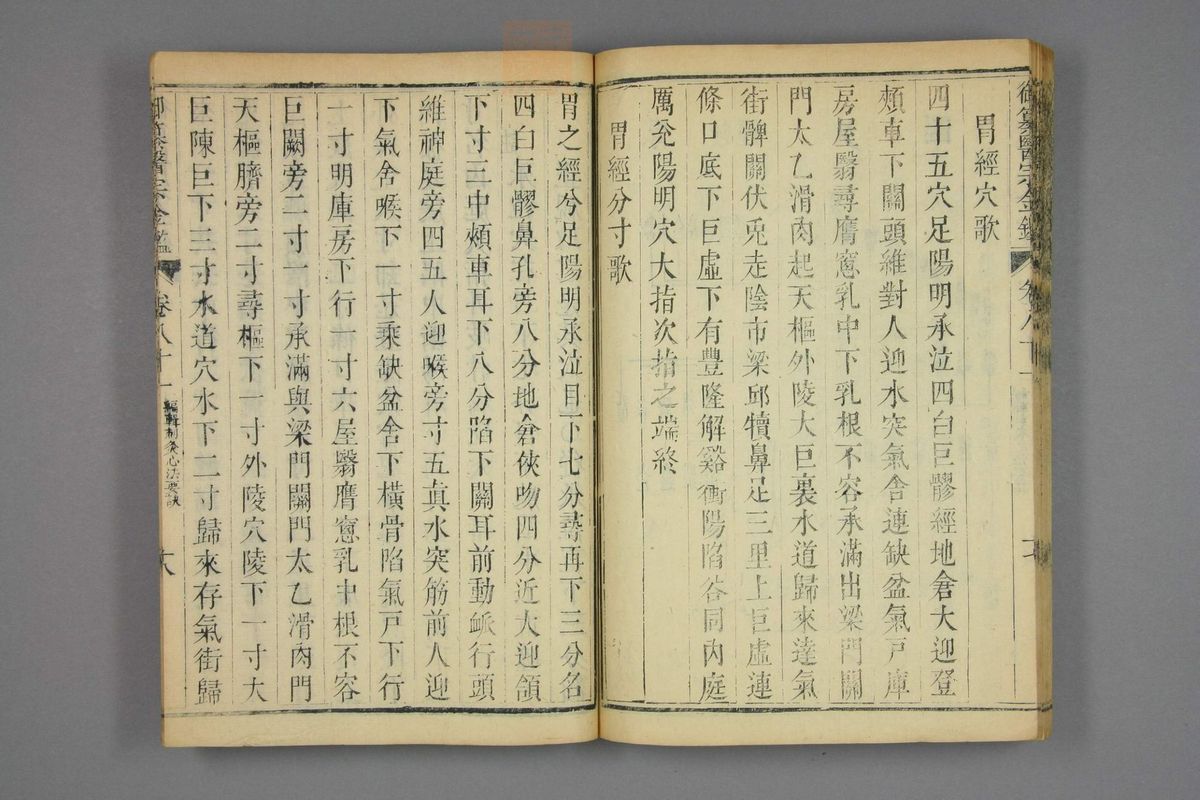 胃經穴歌
四十五穴足陽明承泣四白巨髎經地倉大迎登
頰車下關頭維對人迎水突氣舍連缺盆氣戶庫
房屋翳尋膺窻乳中下乳根不容承滿出梁門關
門太乙滑肉起天樞外陵大巨裏水道歸來達氣
街髀關伏兎走陰市梁邱犢鼻足三里上巨虛連
條口底下巨虛下有豐隆解谿衝陽陷谷同內庭
厲兊陽明穴大指次指之端終
胃經分寸歌
胃之經兮足陽明承泣目下七分尋再下三分名
四白巨髎鼻孔旁八分地倉俠吻四分近大迎頷
下寸三中頰車耳下八分陷下關耳前動脈行頭
維神庭旁四五人迎喉旁寸五真水突筋前人迎
下氣舍喉下一寸乘缺盆舍下橫骨陷氣戶下行
一寸明庫房下行一寸六屋翳膺窻乳中根不容
巨闕旁二寸一寸承滿與梁門關門太乙滑肉門
天樞臍旁二寸尋樞下一寸外陵穴陵下一寸大
巨陳巨下三寸水道穴水下二寸歸來存氣街歸
御纂醫宗金鑑 卷八十一 編輯刺灸心法要訣 十八